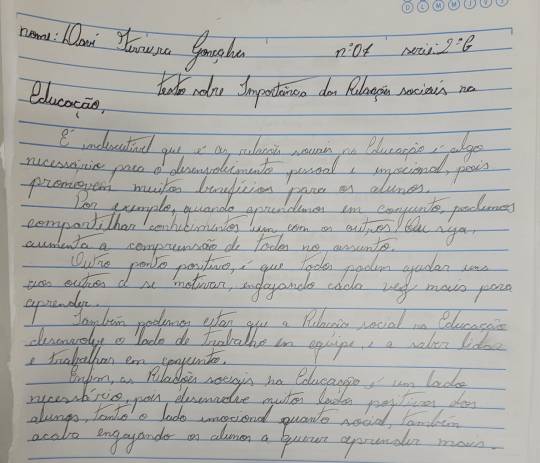 D L M M J V S
nome: Davi Ferreira Gonçalves nº07 serie: 2ºG
texto sobre Importância das Relação sociais na
Educação.
É indiscutível que é as relação sociais na Educação é algo
necessário para o desenvolvimento pessoal e emocional, pois
promovem muitos benefícios para os alunos.
Por exemplo, quando aprendemos em conjunto, podemos
compartilhar conhecimentos um com os outros. Ou seja,
aumenta a compreensão de todos no assunto.
Outro ponto positivo, é que todos podem ajudar uns
aos outros a se motivar, engajando cada vez mais para
aprender.
Também podemos citar que a Relação social na Educação
desenvolve o lado de trabalho em equipe, e a saber lidar
e trabalhar em conjunto.
Enfim, as Relações sociais na Educação é um lado
necessário, pois desenvolve muitos lados positivos dos
alunos, tanto o lado emocional quanto social, também
acaba engajando os alunos a querer aprender mais.